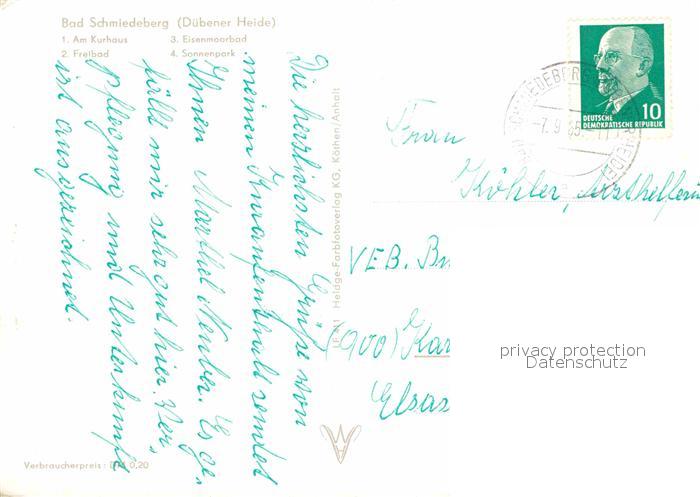 Bad Schmiedeberg (Dübener Heide)
1. Am Kurhaus 3. Eisenmoorbad
2. Freibad 4. Sonnenpark
Die herzlichsten Grüße von
meinem Kuraufenthalt sendet
Ihnen Marthel Neuber. Es ge-
fällt mir sehr gut hier. Ver-
pflegung und Unterkunft
ist ausgezeichnet.
Verbraucherpreis: DM 0,20
Heldge-Farbfotoverlag KG, Köthen/Anhalt
DEUTSCHE
DEMOKRATISCHE REPUBLIK
10
SCHMIEDEBERG
-7.9.65
Frau
Köhler, Arzthelferin
VEB. Br
(900) Kar
Elsas
privacy protection
Datenschutz